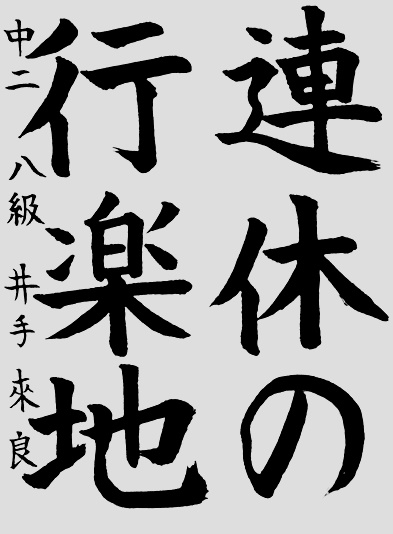 連休の
行楽地
中二 八級 井手 來良